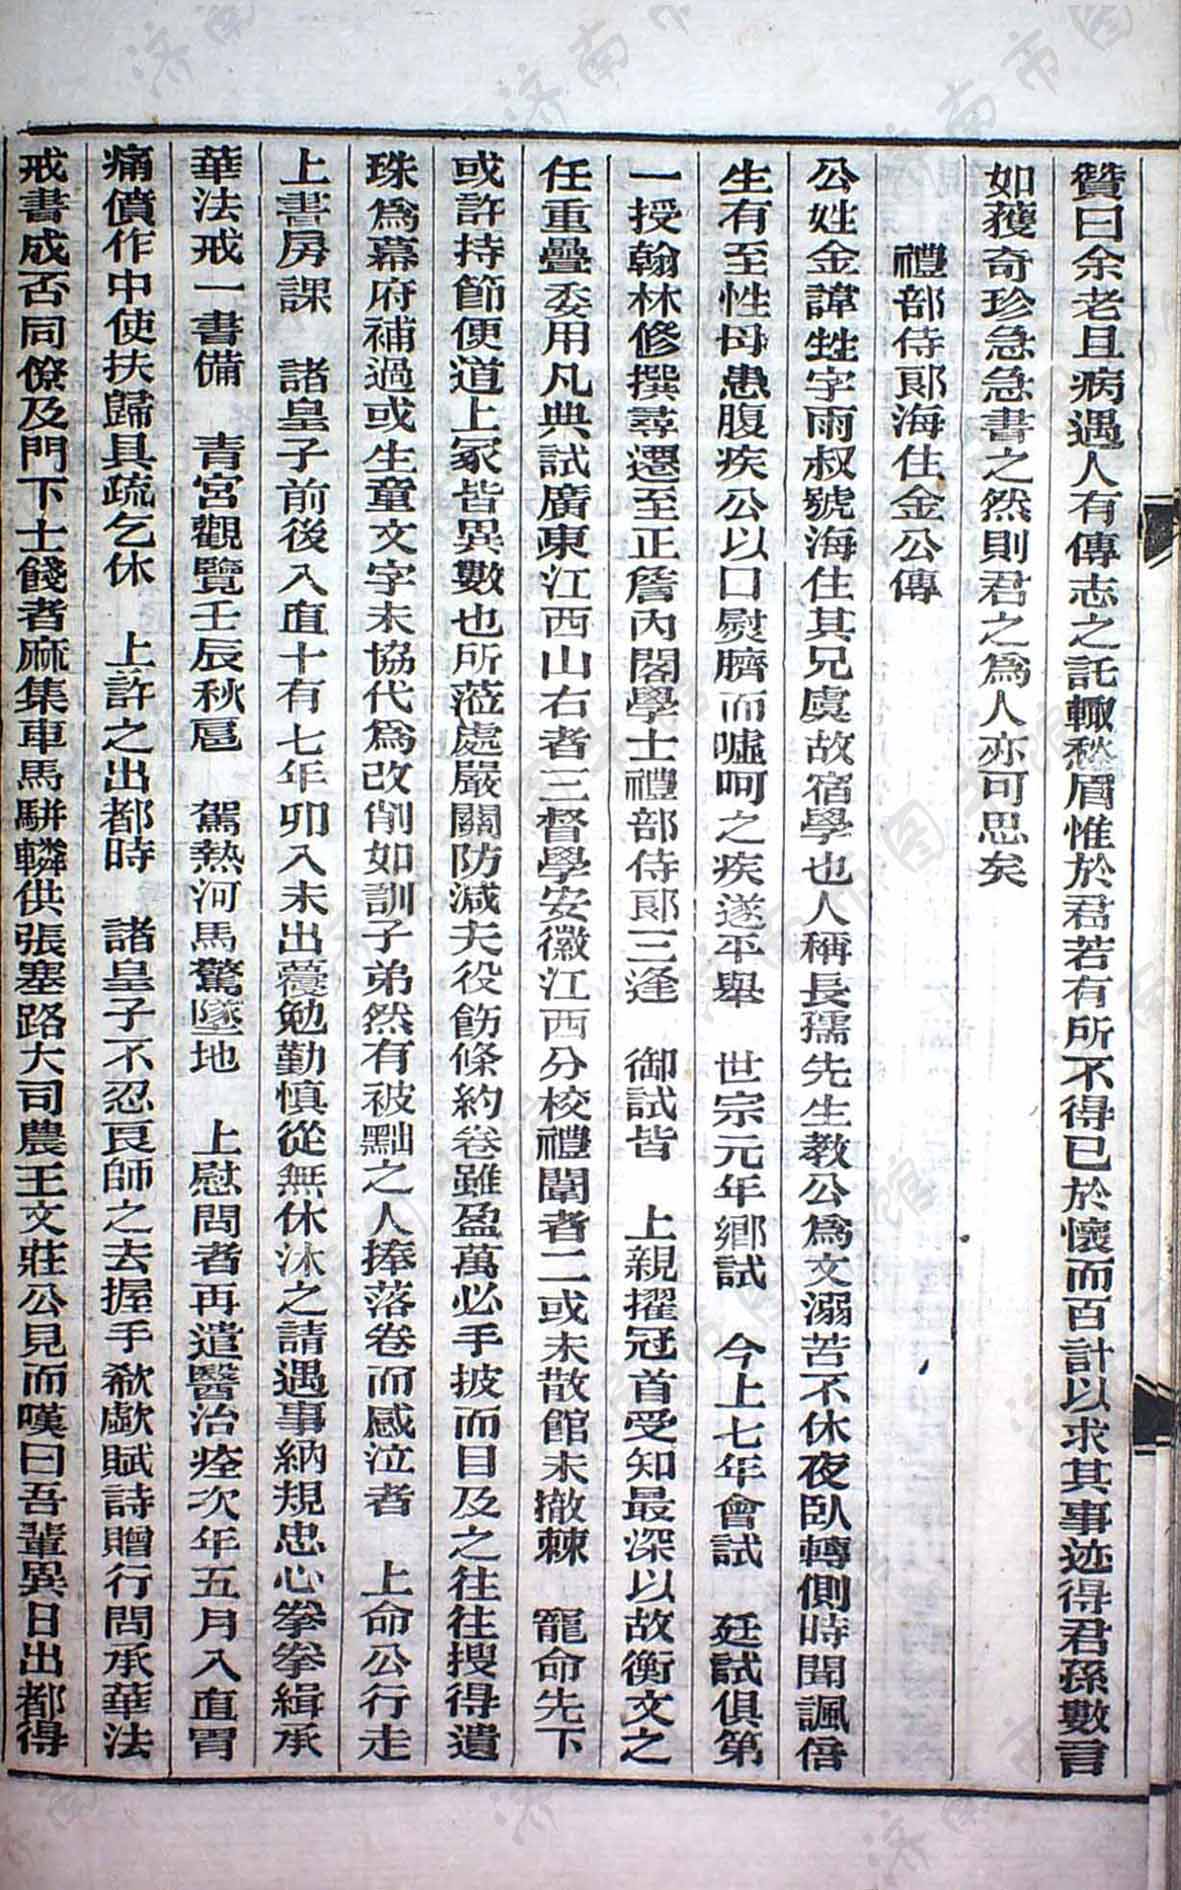 贊曰余老且病遇人有傳志之託輙愁眉惟於君若有所不得已於懷而百計以求其事迹得君孫數言
如獲奇珍急急書之然則君之爲人亦可思矣
禮部侍郞海住金公傳
公姓金諱甡字雨叔號海住其兄虞故宿學也人稱長孺先生教公爲文溺苦不休夜臥轉側時聞諷偣
生有至性母患腹疾公以口熨臍而噓呵之疾遂平舉 世宗元年鄉試 今上七年會試 廷試俱第
一授翰林修撰尋遷至正詹內閣學士禮部侍郞三逢 御試皆 上親擢冠首受知最深以故衡文之
任重疊委用凡典試廣東江西山右者三督學安徽江西分校禮闈者二或未散館未撤棘 寵命先下
或許持節便道上冢皆異數也所蒞處嚴關防減夫役飭條約卷雖盈萬必手披而目及之往往搜得遺
珠爲幕府補過或生童文字未協代爲改削如訓子弟然有被黜之人捧落卷而感泣者 上命公行走
上書房課 諸皇子前後入直十有七年卯入未出虋勉勤慎從無休沐之請遇事納規忠心拳拳緝承
華法戒一書備 青宮觀覽壬辰秋扈 駕熱河馬驚墜地 上慰問者再遣醫治痊次年五月入直胃
痛僨作中使扶歸具疏乞休 上許之出都時 諸皇子不忍良師之去握手欷歔賦詩贈行問承華法
戒書成否同僚及門下士餞者麻集車馬駢轔供張塞路大司農王文莊公見而嘆曰吾輩異日出都得
济南市图书馆